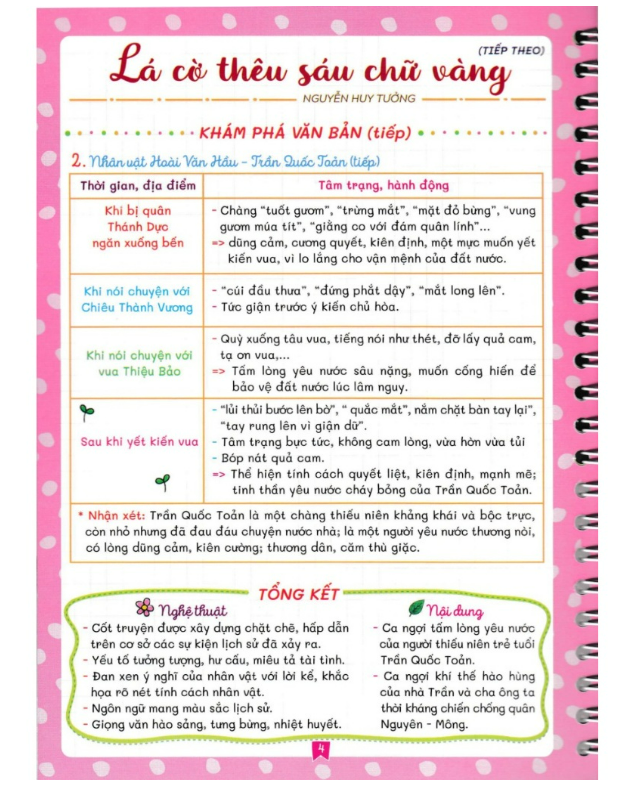 (TIẾP THEO)
Lá cờ thêu sáu chữ vàng
NGUYỄN HUY TƯỞNG
KHÁM PHÁ VĂN BẢN (tiếp)
2. Nhân vật Hoài Văn Hầu - Trần Quốc Toản (tiếp)
Thời gian, địa điểm
Tâm trạng, hành động
Khi bị quân
Thánh Dực
ngăn xuống bến
- Chàng "tuốt gươm", "trừng mắt", "mặt đỏ bừng", "vung
gươm múa tít", "giằng co với đám quân lính"...
=> dũng cảm, cương quyết, kiên định, một mực muốn yết
kiến vua, vì lo lắng cho vận mệnh của đất nước.
Khi nói chuyện với
Chiêu Thành Vương
- "cúi đầu thưa", "đứng phắt dậy", "mắt long lên".
- Tức giận trước ý kiến chủ hòa.
Khi nói chuyện với
vua Thiệu Bảo
- Quỳ xuống tâu vua, tiếng nói như thét, đỡ lấy quả cam,
tạ ơn vua,...
=> Tấm lòng yêu nước sâu nặng, muốn cống hiến để
bảo vệ đất nước lúc lâm nguy.
Sau khi yết kiến vua
- "lủi thủi bước lên bờ", " quắc mắt", nắm chặt bàn tay lại",
"tay rung lên vì giận dữ".
- Tâm trạng bực tức, không cam lòng, vừa hờn vừa tủi
- Bóp nát quả cam.
=> Thể hiện tính cách quyết liệt, kiên định, mạnh mẽ;
tinh thần yêu nước cháy bỏng của Trần Quốc Toản.
* Nhận xét: Trần Quốc Toản là một chàng thiếu niên khảng khái và bộc trực,
còn nhỏ nhưng đã đau đáu chuyện nước nhà; là một người yêu nước thương nòi,
có lòng dũng cảm, kiên cường; thương dân, căm thù giặc.
TỔNG KẾT
Nghệ thuật
- Cốt truyện được xây dựng chặt chẽ, hấp dẫn
trên cơ sở các sự kiện lịch sử đã xảy ra.
- Yếu tố tưởng tượng, hư cấu, miêu tả tài tình.
- Đan xen ý nghĩ của nhân vật với lời kể, khắc
họa rõ nét tính cách nhân vật.
- Ngôn ngữ mang màu sắc lịch sử.
- Giọng văn hào sảng, tưng bừng, nhiệt huyết.
Nội dung
- Ca ngợi tấm lòng yêu nước
của người thiếu niên trẻ tuổi
Trần Quốc Toản.
- Ca ngợi khí thế hào hùng
của nhà Trần và cha ông ta
thời kháng chiến chống quân
Nguyên - Mông.
4